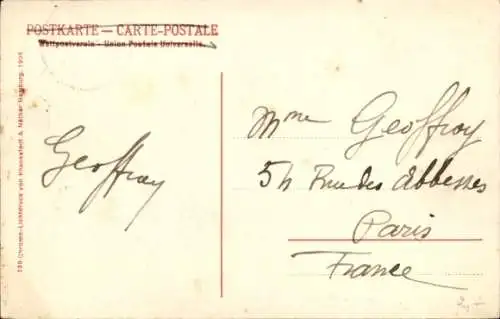 POSTKARTE — CARTE-POSTALE
Weltpostverein - Union Postale Universelle
Mme Geoffroy
54 Rue des Abbesses
Paris
France
Geoffray
139 Chromo-Lichtdruck von Knackstedt & Näther Hamburg. 1904